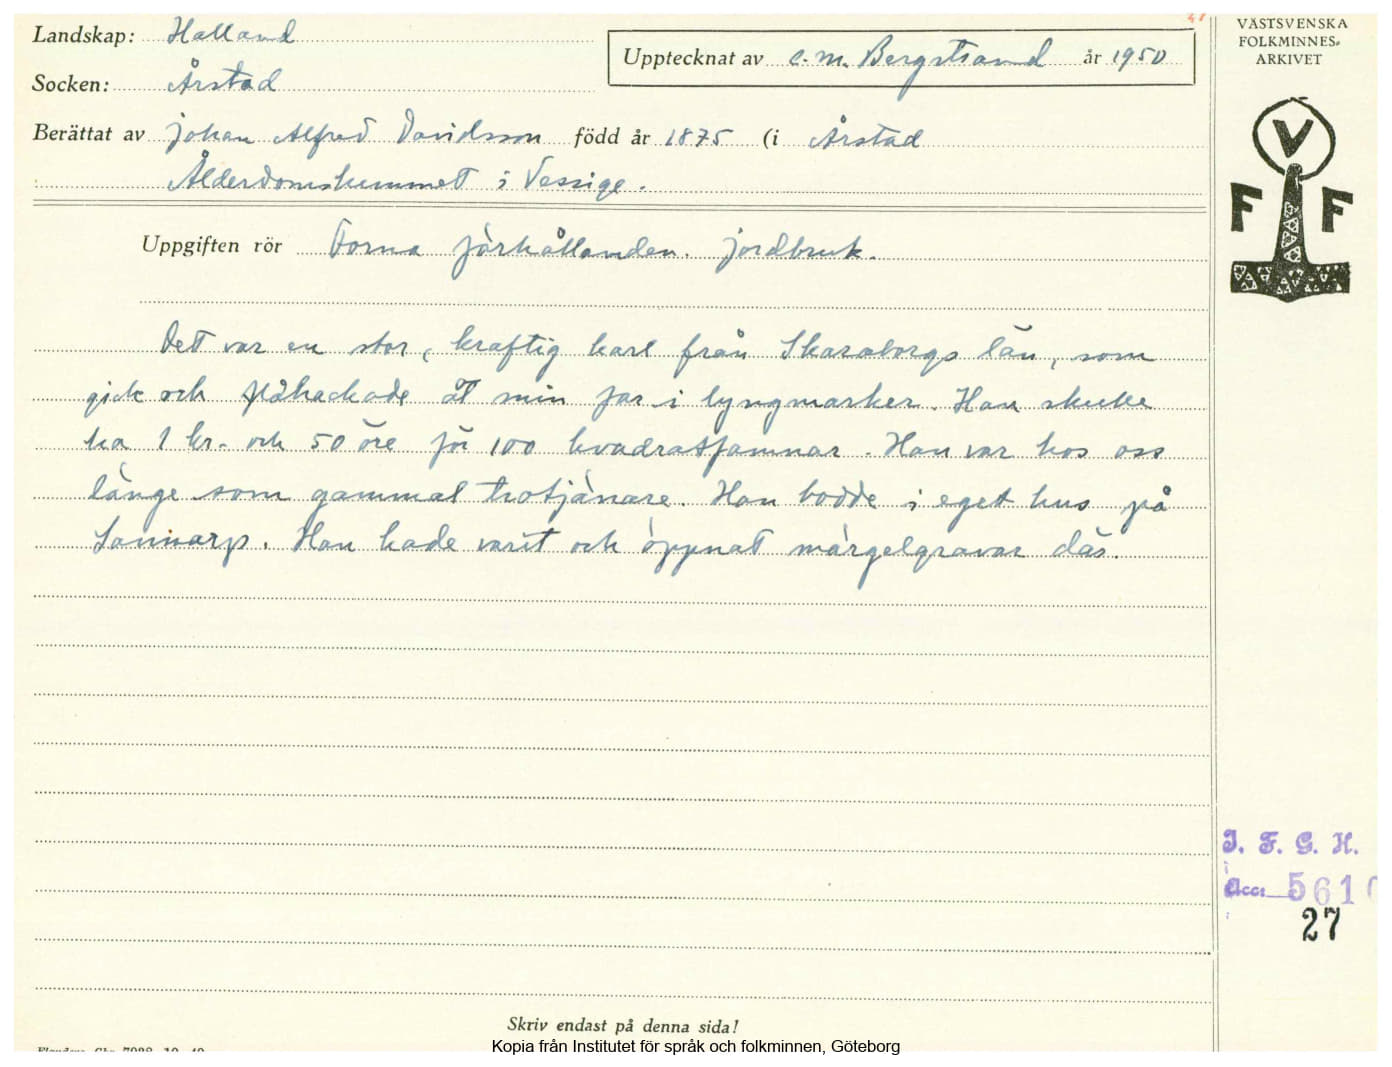 Landskap: Halland
Upptecknat av C. M. Bergstrand år 1950
VÄSTSVENSKA
FOLKMINNES-
ARKIVET
Socken: Årstad
Berättat av Johan Alfred Davidsson född år 1875 (i Årstad
Ålderdomshemmet i Vessige.
V
F F
Uppgiften rör Forna förhållanden. Jordbruk.
Det var en stor, kraftig karl från Skaraborgs län, som
gick och flåhackade åt min far i lyngmarker. Han skulle
ha 1 kr. och 50 öre för 100 kvadratfamnar. Han var hos oss
länge som gammal trotjänare. Han bodde i eget hus på
Sannarp. Han hade varit och öppnat märgelgravar där.
I. F. G. H.
Acc: 5610
27
Skriv endast på denna sida!
Kopia från Institutet för språk och folkminnen, Göteborg